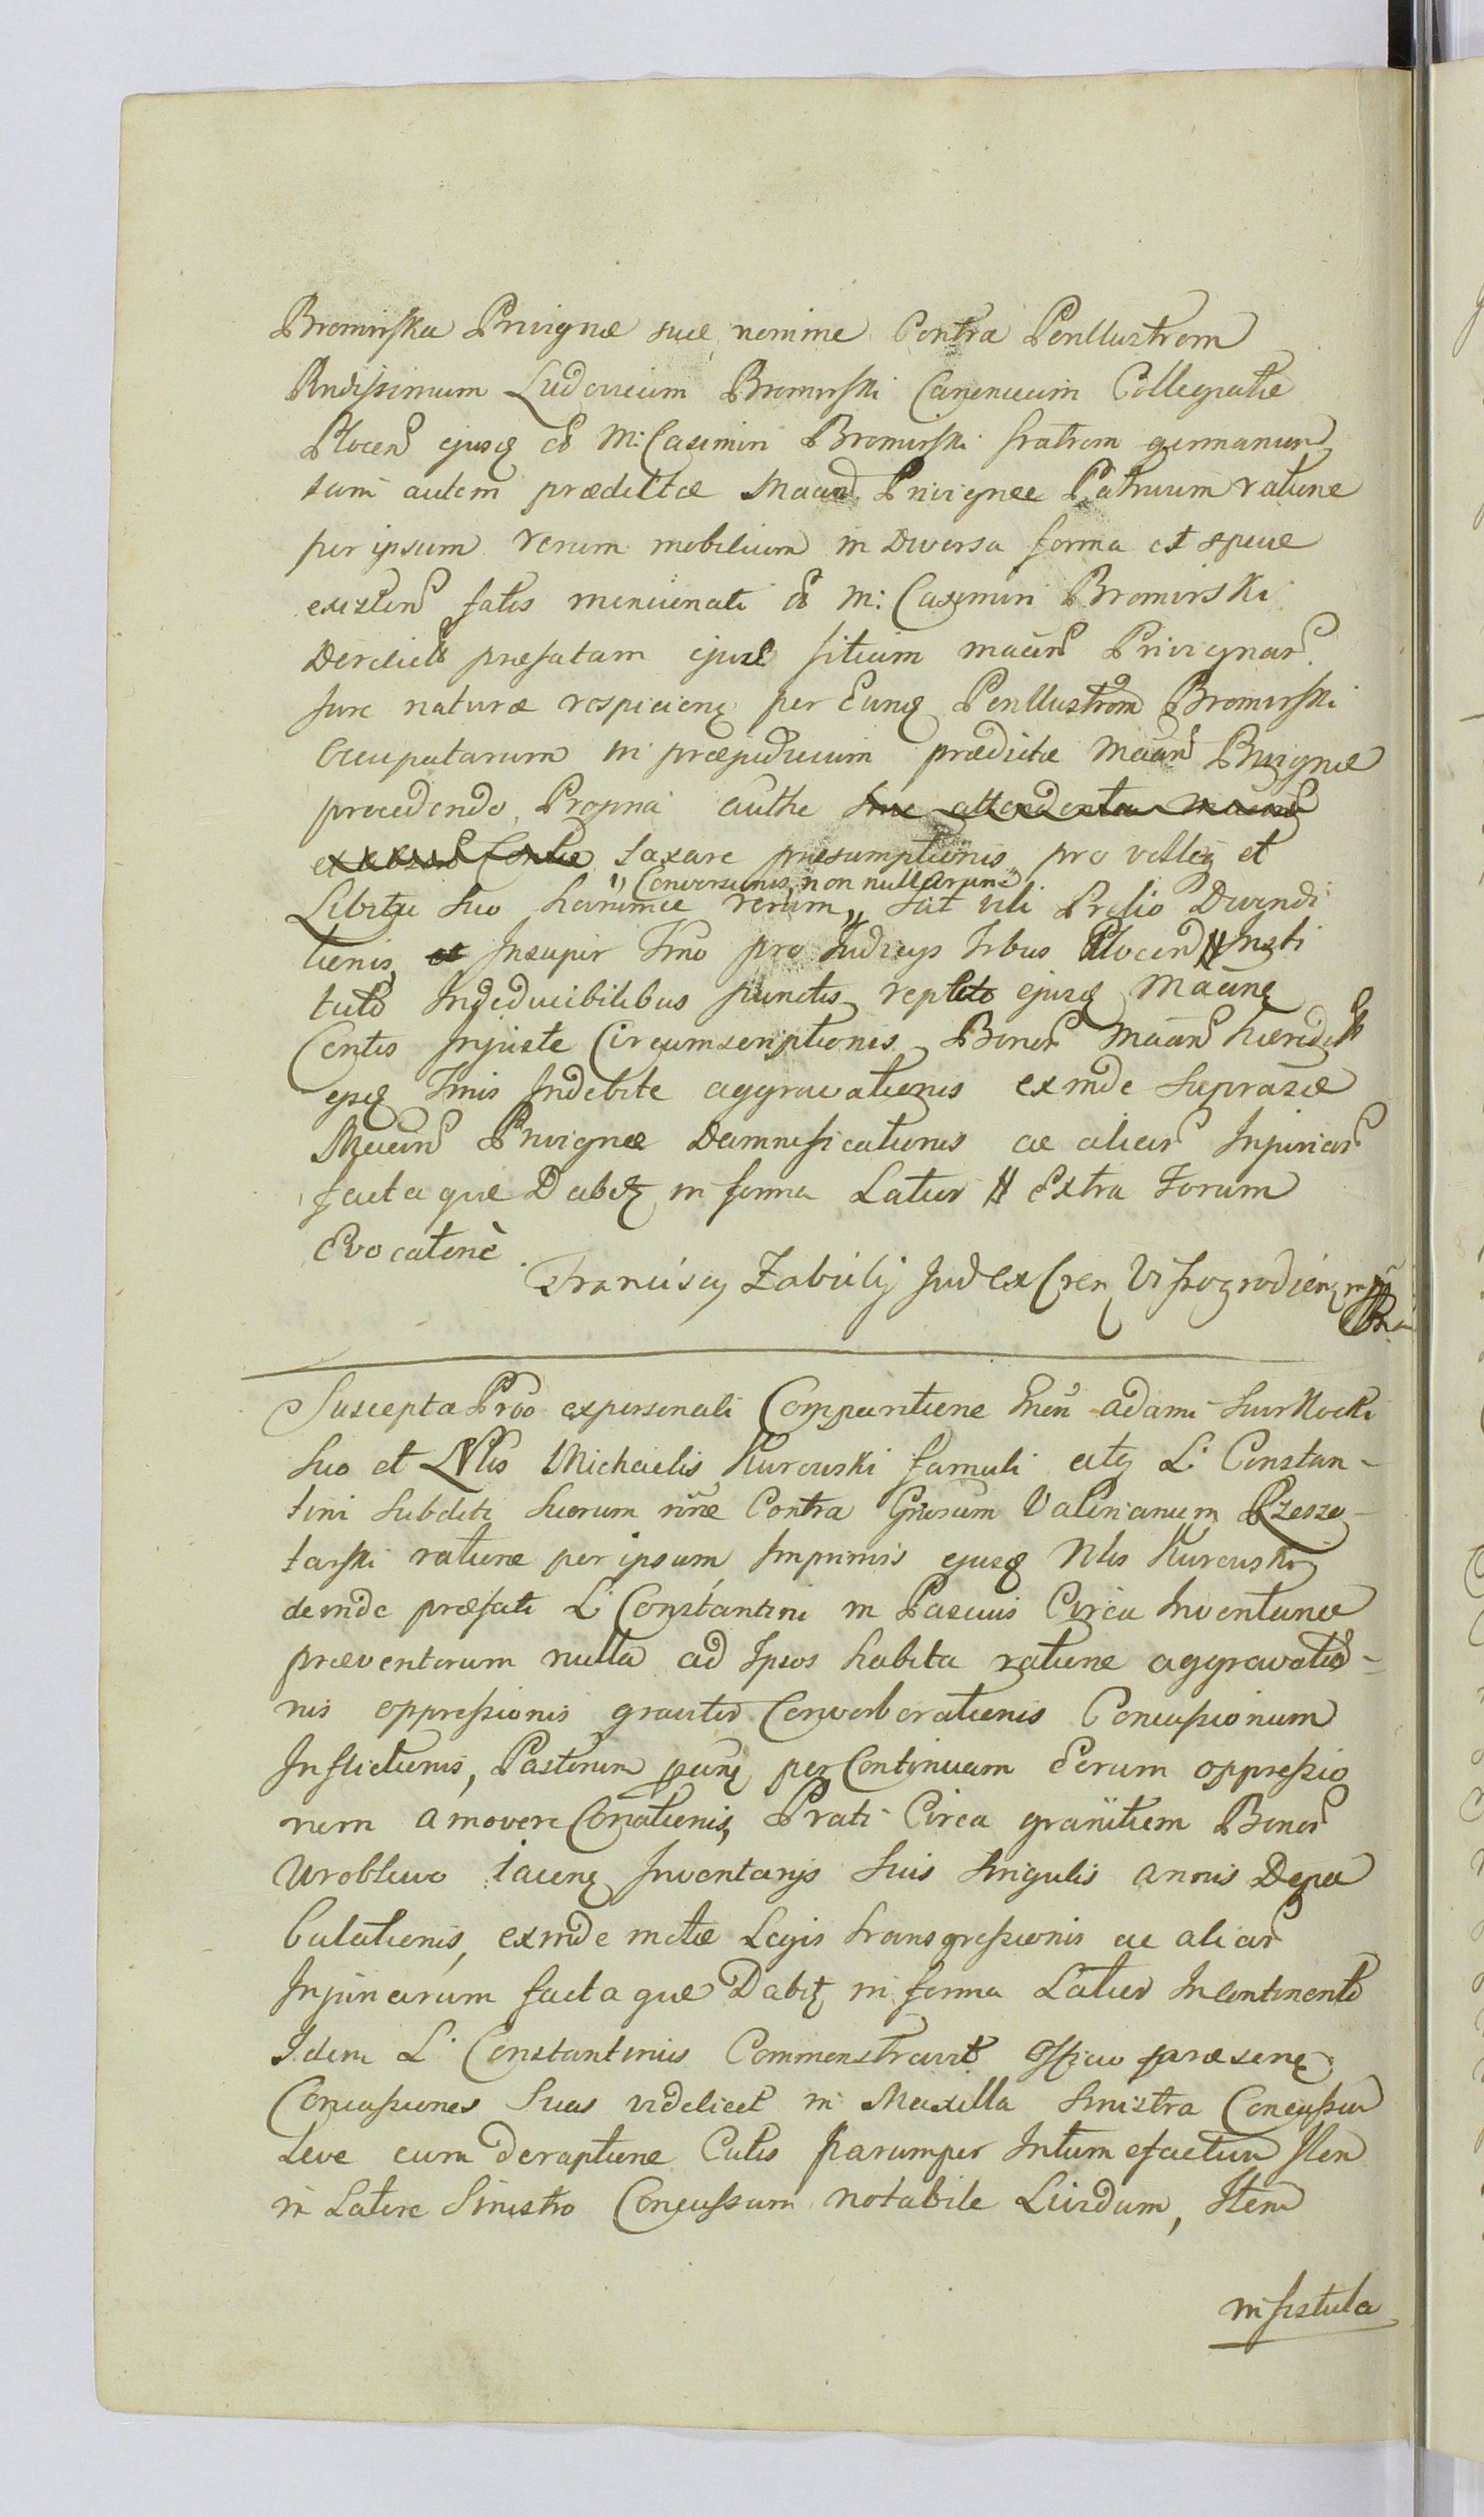 Bromirska Privignæ suæ nomine Contra Perillustrem
Rndissimum Ludovicum Bromirski Canonicum Collegiatæ
Plocen ejusq M: Casimiri Bromirski fratrem germanum
tum autem prædiltæ Maan Privignæ Patruum ratione
per ipsum rerum mobilium in Diversa forma et specie
existen satis mencionati M: Casimiri Bromirski
Derelict præfatam ejusd filiam maan Privignam
Jure naturæ respicien per Eunq Perillustrem Bromirski
Occupatarum in præjudicium prædictæ Maan Privignæ
procedendo Propria authe sine attendenta maan
taxare præsumptionis pro velleq et
Libitu suo harumce rerum „ sat vili Prætio Divendi
„ Conversionis, non nullarum
tionis, et Insuper Tmo pro Judicys Trbus Plocen Insti
tuto Indeducibilibus punctis repleto ejusq Maan
Contis Injuste Circumscriptionis Bonor Maan hæredit
ejsq Tmis Indebite aggravationis exinde Supra
Maan Privignæ Damnificationis ac aliar Injuriar
facta que Dabit in forma Latior Extra Forum
Evocatione.
Franciscq Zabiely Judex Cren Vissogrodien mp
Suscepta Prõ expersonali Compartione Gnen Adami Surkocki
Suo et Nlis Michaelis Kurowski famuli atq L: Constan-
tini Subditi suorum nnẽ Contra Gnrosum Valerianum Rzeszo-
tarski ratione per ipsum Imprimis ejusq Nlis Kurowski
deinde præfati L: Constantini in Pascuis Circa Inventaria
præventorum nulla ad Ipsos habita ratione aggravatio-
nis oppressionis graviter Converberationis Concussionum
Inflictionis, Pastorum per Continuam Eorum oppressio
nem amovere Conationis, Prati Circa granitiem Bonor
Wroblewo iacen Inventarys Suis Singulis annis Depa
bulationis, exinde motæ Legis transgressionis ac aliar
Injuriarum facta que Dabit in forma Latior Incontinenti
Idem L: Constantinus Commonstravit Officio præsen
Concussiones Suas videlicet in Maxilla Sinistra Concussum
Leve cum Deraptione Cutis parumper Intumefactum Item
in Latere Sinistro Concussum notabile Lividum, Item
in fistula